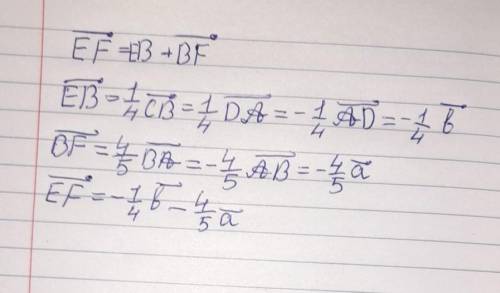 EF = EB + BF
EB = 1/4 CB = 1/4 DA = -1/4 AD = -1/4 b
BF = 4/5 BA = -4/5 AB = -4/5 a
EF = -1/4 b - 4/5 a